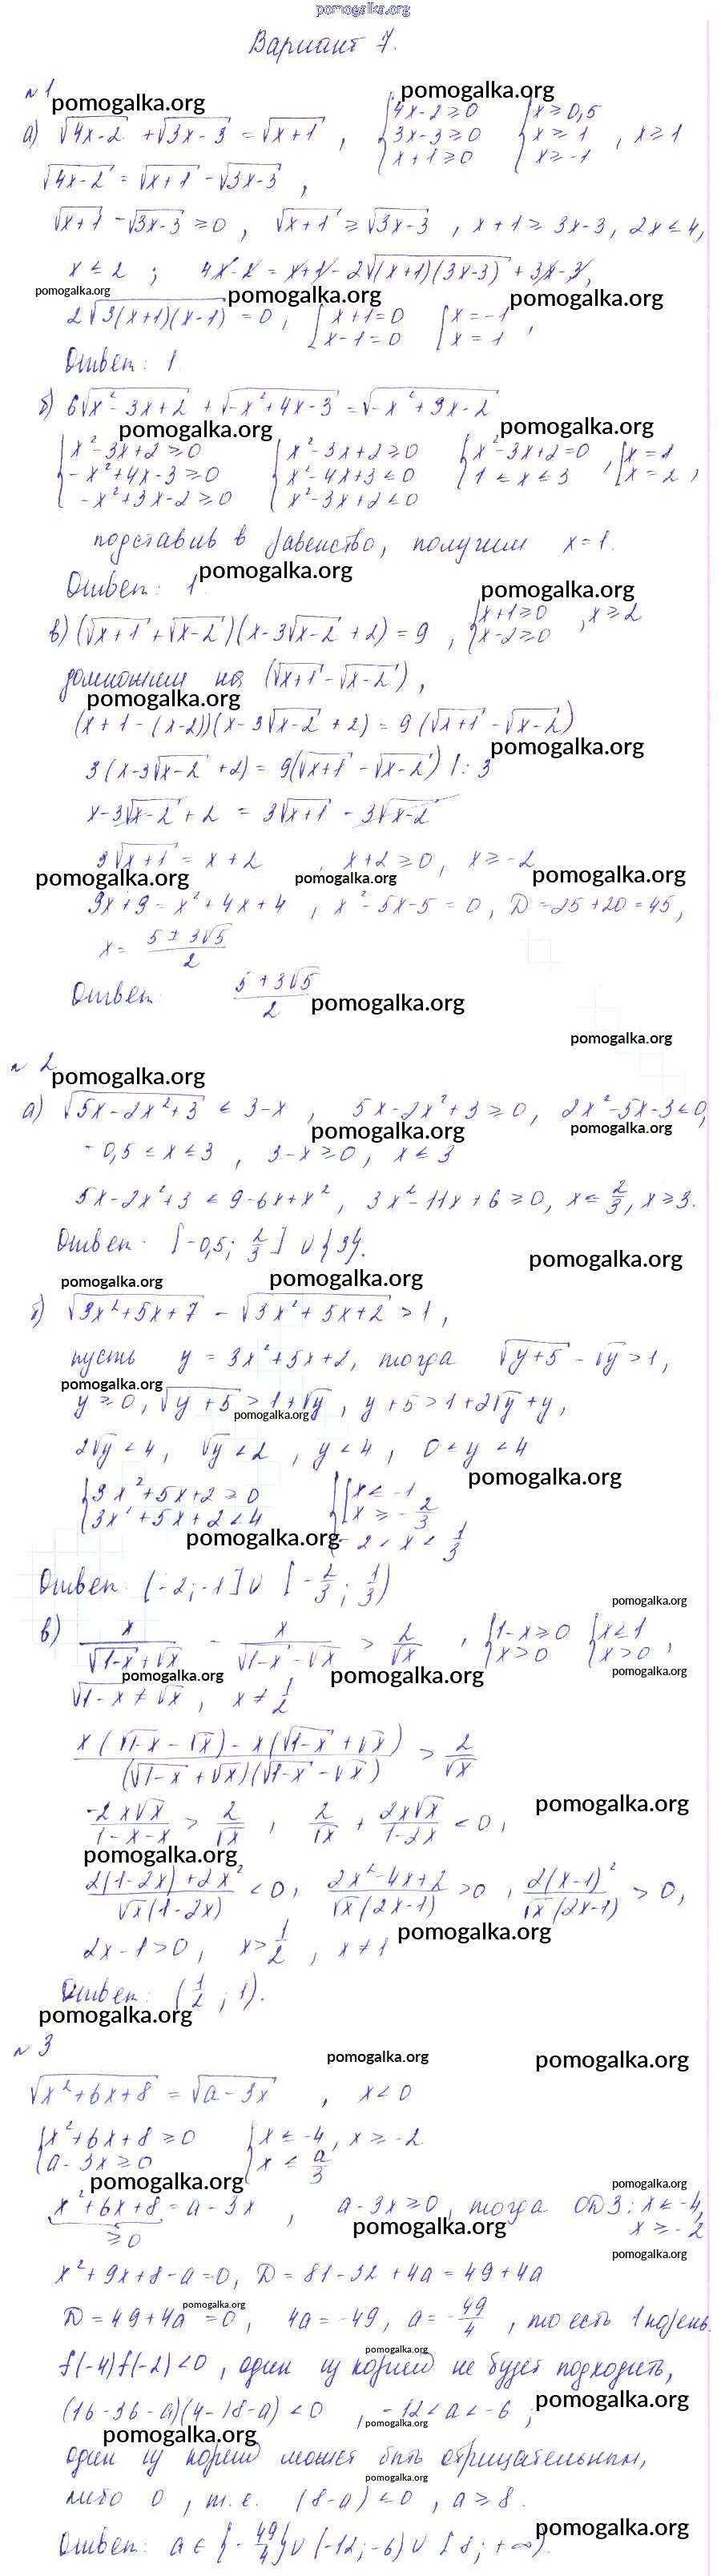 pomogalka.org
Вариант 7.
№1
pomogalka.org pomogalka.org
а) √(4x-2) + √(3x-3) = √(x+1), {4x-2≥0 {x≥0,5
{3x-3≥0 {x≥1 , x≥1
{x+1≥0 {x≥-1
√(4x-2) = √(x+1) - √(3x-3),
√(x+1) - √(3x-3) ≥ 0, √(x+1) ≥ √(3x-3), x+1≥3x-3, 2x≤4,
x≤2; 4x-2 = x+1-2√((x+1)(3x-3)) + 3x-3,
pomogalka.org pomogalka.org pomogalka.org
2√(3(x+1)(x-1)) = 0, [x+1=0 [x=-1
[x-1=0 [x=1 ,
Ответ: 1
б) 6√(x²-3x+2) + √(-x²+4x-3) = √(-x²+3x-2)
pomogalka.org pomogalka.org
{x²-3x+2≥0 {x²-3x+2≥0 {x²-3x+2=0 [x=1
{-x²+4x-3≥0 {x²-4x+3≤0 {1≤x≤3 , [x=2 ,
{-x²+3x-2≥0 {x²-3x+2≤0
подставив в равенство, получим x=1.
pomogalka.org
Ответ: 1 pomogalka.org
в) (√(x+1) + √(x-2))(x-3√(x-2)+2) = 9, {x+1≥0 , x≥2
{x-2≥0
домножим на (√(x+1) - √(x-2)),
pomogalka.org
(x+1-(x-2))(x-3√(x-2)+2) = 9(√(x+1) - √(x-2))
pomogalka.org
3(x-3√(x-2)+2) = 9(√(x+1) - √(x-2)) |:3
x-3√(x-2)+2 = 3√(x+1) - 3√(x-2)
3√(x+1) = x+2 , x+2≥0, x≥-2
pomogalka.org pomogalka.org pomogalka.org
9x+9 = x²+4x+4, x²-5x-5=0, D=25+20=45,
x = (5±3√5)/2
Ответ: (5+3√5)/2
pomogalka.org
pomogalka.org
№2
pomogalka.org
а) √(5x-2x²+3) ≤ 3-x, 5x-2x²+3≥0, 2x²-5x-3≤0,
pomogalka.org pomogalka.org
-0,5≤x≤3, 3-x≥0, x≤3
5x-2x²+3 ≤ 9-6x+x², 3x²-11x+6≥0, x≤2/3, x≥3.
Ответ: [-0,5; 2/3] ∪ {3}.
pomogalka.org
pomogalka.org pomogalka.org
б) √(3x²+5x+7) - √(3x²+5x+2) > 1,
пусть y=3x²+5x+2, тогда √(y+5) - √y > 1,
pomogalka.org
y≥0, √(y+5) > 1+√y, y+5>1+2√y+y,
pomogalka.org
2√y<4, √y<2, y<4, 0≤y<4
pomogalka.org
{3x²+5x+2≥0 {[x≤-1
{3x²+5x+2<4 {[x≥-2/3
pomogalka.org {-2<x<1/3
Ответ: (-2;-1] ∪ [-2/3; 1/3)
pomogalka.org
в) x/(√(1-x)+√x) - x/(√(1-x)-√x) > 2/√x , {1-x≥0 {x≤1
{x>0 {x>0 ,
pomogalka.org pomogalka.org pomogalka.org
√(1-x)≠√x, x≠1/2
(x(√(1-x)-√x)-x(√(1-x)+√x))/((√(1-x)+√x)(√(1-x)-√x)) > 2/√x
pomogalka.org
-2x√x/(1-x-x) > 2/√x , 2/√x + 2x√x/(1-2x) < 0,
pomogalka.org
(2(1-2x)+2x²)/(√x(1-2x)) < 0, (2x²-4x+2)/(√x(2x-1)) > 0, 2(x-1)²/(√x(2x-1)) > 0,
pomogalka.org
2x-1>0, x>1/2 , x≠1
Ответ: (1/2; 1).
pomogalka.org
№3
pomogalka.org pomogalka.org
√(x²+6x+8) = √(a-3x) , x<0
{x²+6x+8≥0 {x≤-4, x≥-2
{a-3x≥0 {x≤a/3
pomogalka.org pomogalka.org
x²+6x+8 = a-3x , a-3x≥0, тогда ОДЗ: x≤-4,
≥0 pomogalka.org x≥-2
pomogalka.org
x²+9x+8-a=0, D=81-32+4a=49+4a
pomogalka.org
D=49+4a=0, 4a=-49, a=-49/4, то есть 1 корень.
pomogalka.org
f(-4)f(-2)<0, один из корней не будет подходить,
pomogalka.org
(16-36-a)(4-18-a)<0 , -12<a<-6;
pomogalka.org pomogalka.org
один из корней может быть отрицательным,
pomogalka.org
либо 0, т.е. (8-a)≤0, a≥8.
pomogalka.org
Ответ: a∈{-49/4}∪(-12;-6)∪[8;+∞).